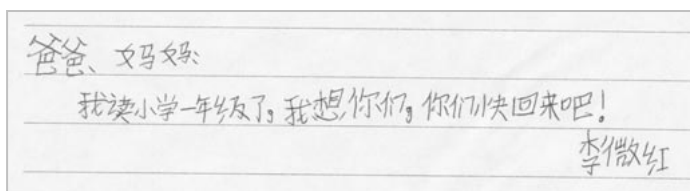 爸爸、妈妈:
我读小学一年级了。我想你们。你们快回来吧!
李微红